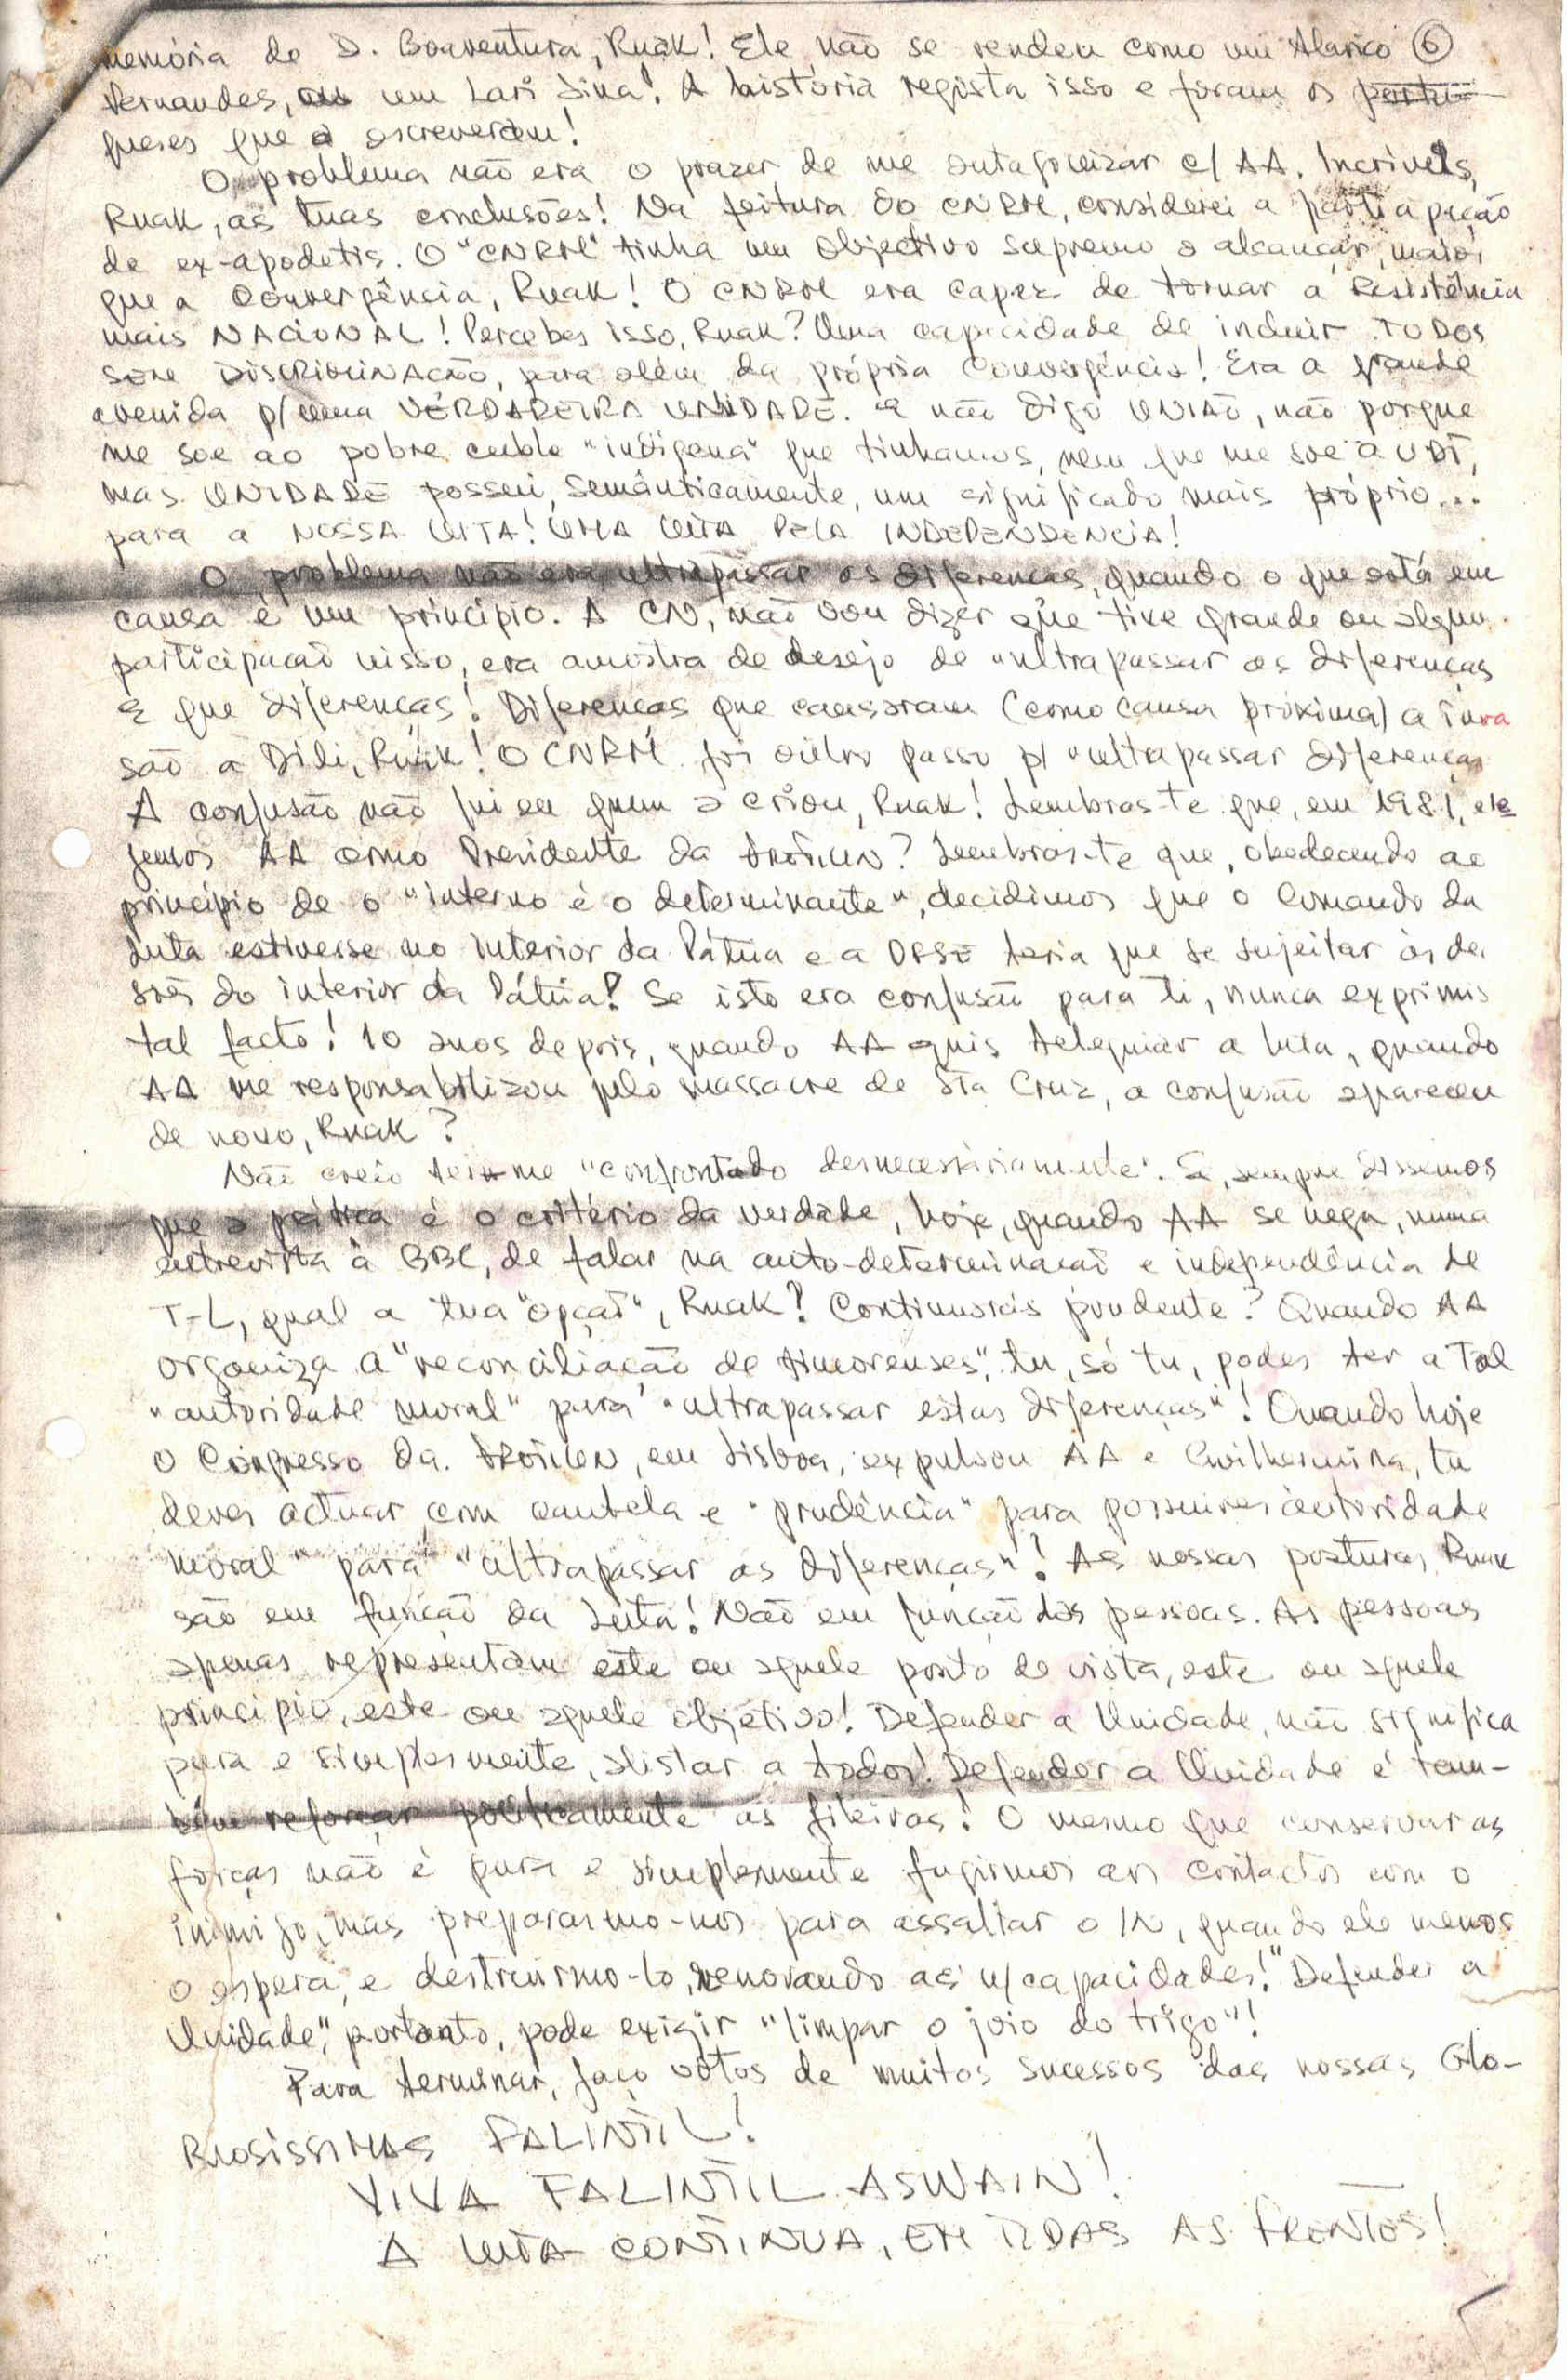 memória de D. Boaventura, Ruak! Ele não se rendeu como um Alarico ⑥
Fernandes, ou um Lari Sina! A história regista isso e foram os portu-
gueses que a escreveram!
O problema não era o prazer de me antagonizar c/ AA. Incríveis,
Ruak, as tuas conclusões! Na feitura do CNRM, considerei a participação
de ex-apodetis. O "CNRM" tinha um objectivo supremo a alcançar, maior
que a Convergência, Ruak! O CNRM era capaz de tornar a Resistência
mais NACIONAL! Percebes isso, Ruak? Uma capacidade de incluir TODOS
SEM DISCRIMINAÇÃO, para além da própria Convergência! Era a grande
avenida p/ uma VERDADEIRA UNIDADE. E não digo UNIÃO, não porque
me soe ao pobre clube "indígena" que tinhamos, nem que me soe a UDT,
mas UNIDADE possui, semânticamente, um significado mais próprio...
para a NOSSA LUTA! UMA LUTA PELA INDEPENDENCIA!
O problema não era ultrapassar as diferenças, quando o que está em
causa é um princípio. A CN, não vou dizer que tive grande ou algum
participação nisso, era amostra de desejo de "ultrapassar as diferenças
E que diferenças! Diferenças que causaram (como causa próxima) a inva
são a Dili, Ruak! O CNRM foi outro passo p/ "ultrapassar diferenças
A confusão não fui eu quem a criou, Ruak! Lembras-te que, em 1981, ele
gemos AA como Presidente da FRETILIN? Lembras-te que, obedecendo ao
princípio de o "interno é o determinante", decidimos que o Comando da
Luta estivesse no interior da Pátria e a DFSE teria que se sujeitar às de
sões do interior da Pátria? Se isto era confusão para ti, nunca exprimis
tal facto! 10 anos depois, quando AA quis teleguiar a luta, quando
AA me responsabilizou pelo massacre de Sta Cruz, a confusão apareceu
de novo, Ruak?
Não creio ter-me "confrontado desnecessáriamente". Se, sempre dissemos
que a prática é o critério da verdade, hoje, quando AA se nega, numa
entrevista à BBC, de falar na auto-determinação e independência de
T-L, qual a tua "opção", Ruak? Continuarás prudente? Quando AA
organiza a "reconciliação de timorenses", tu, só tu, podes ter a tal
"autoridade moral" para "ultrapassar estas diferenças"! Quando hoje
o Congresso da FRETILIN, em Lisboa, expulsou AA e Guilhermina, tu
deves actuar com cautela e "prudência" para possuires "autoridade
moral" para "ultrapassar as diferenças"! As nossas posturas, Ruak
são em função da Luta! Não em função das pessoas. As pessoas
apenas representam este ou aquele ponto de vista, este ou aquele
princípio, este ou aquele objetivo! Defender a Unidade, não significa
pura e simplesmente, alistar a todos! Defender a Unidade é tam-
bém reforçar políticamente as fileiras! O mesmo que conservar as
forças não é pura e simplesmente fugirmos aos contactos com o
inimigo, mas prepararmo-nos para assaltar o IN, quando ele menos
o espera, e destruirmo-lo, renovando as n/ capacidades! "Defender a
Unidade", portanto, pode exigir "limpar o joio do trigo"!
Para terminar, faço votos de muitos sucessos das nossas Glo-
RIOSISSIMAS FALINTIL!
VIVA FALINTIL ASWAIN!
A LUTA CONTINUA, EM TODAS AS FRENTES!